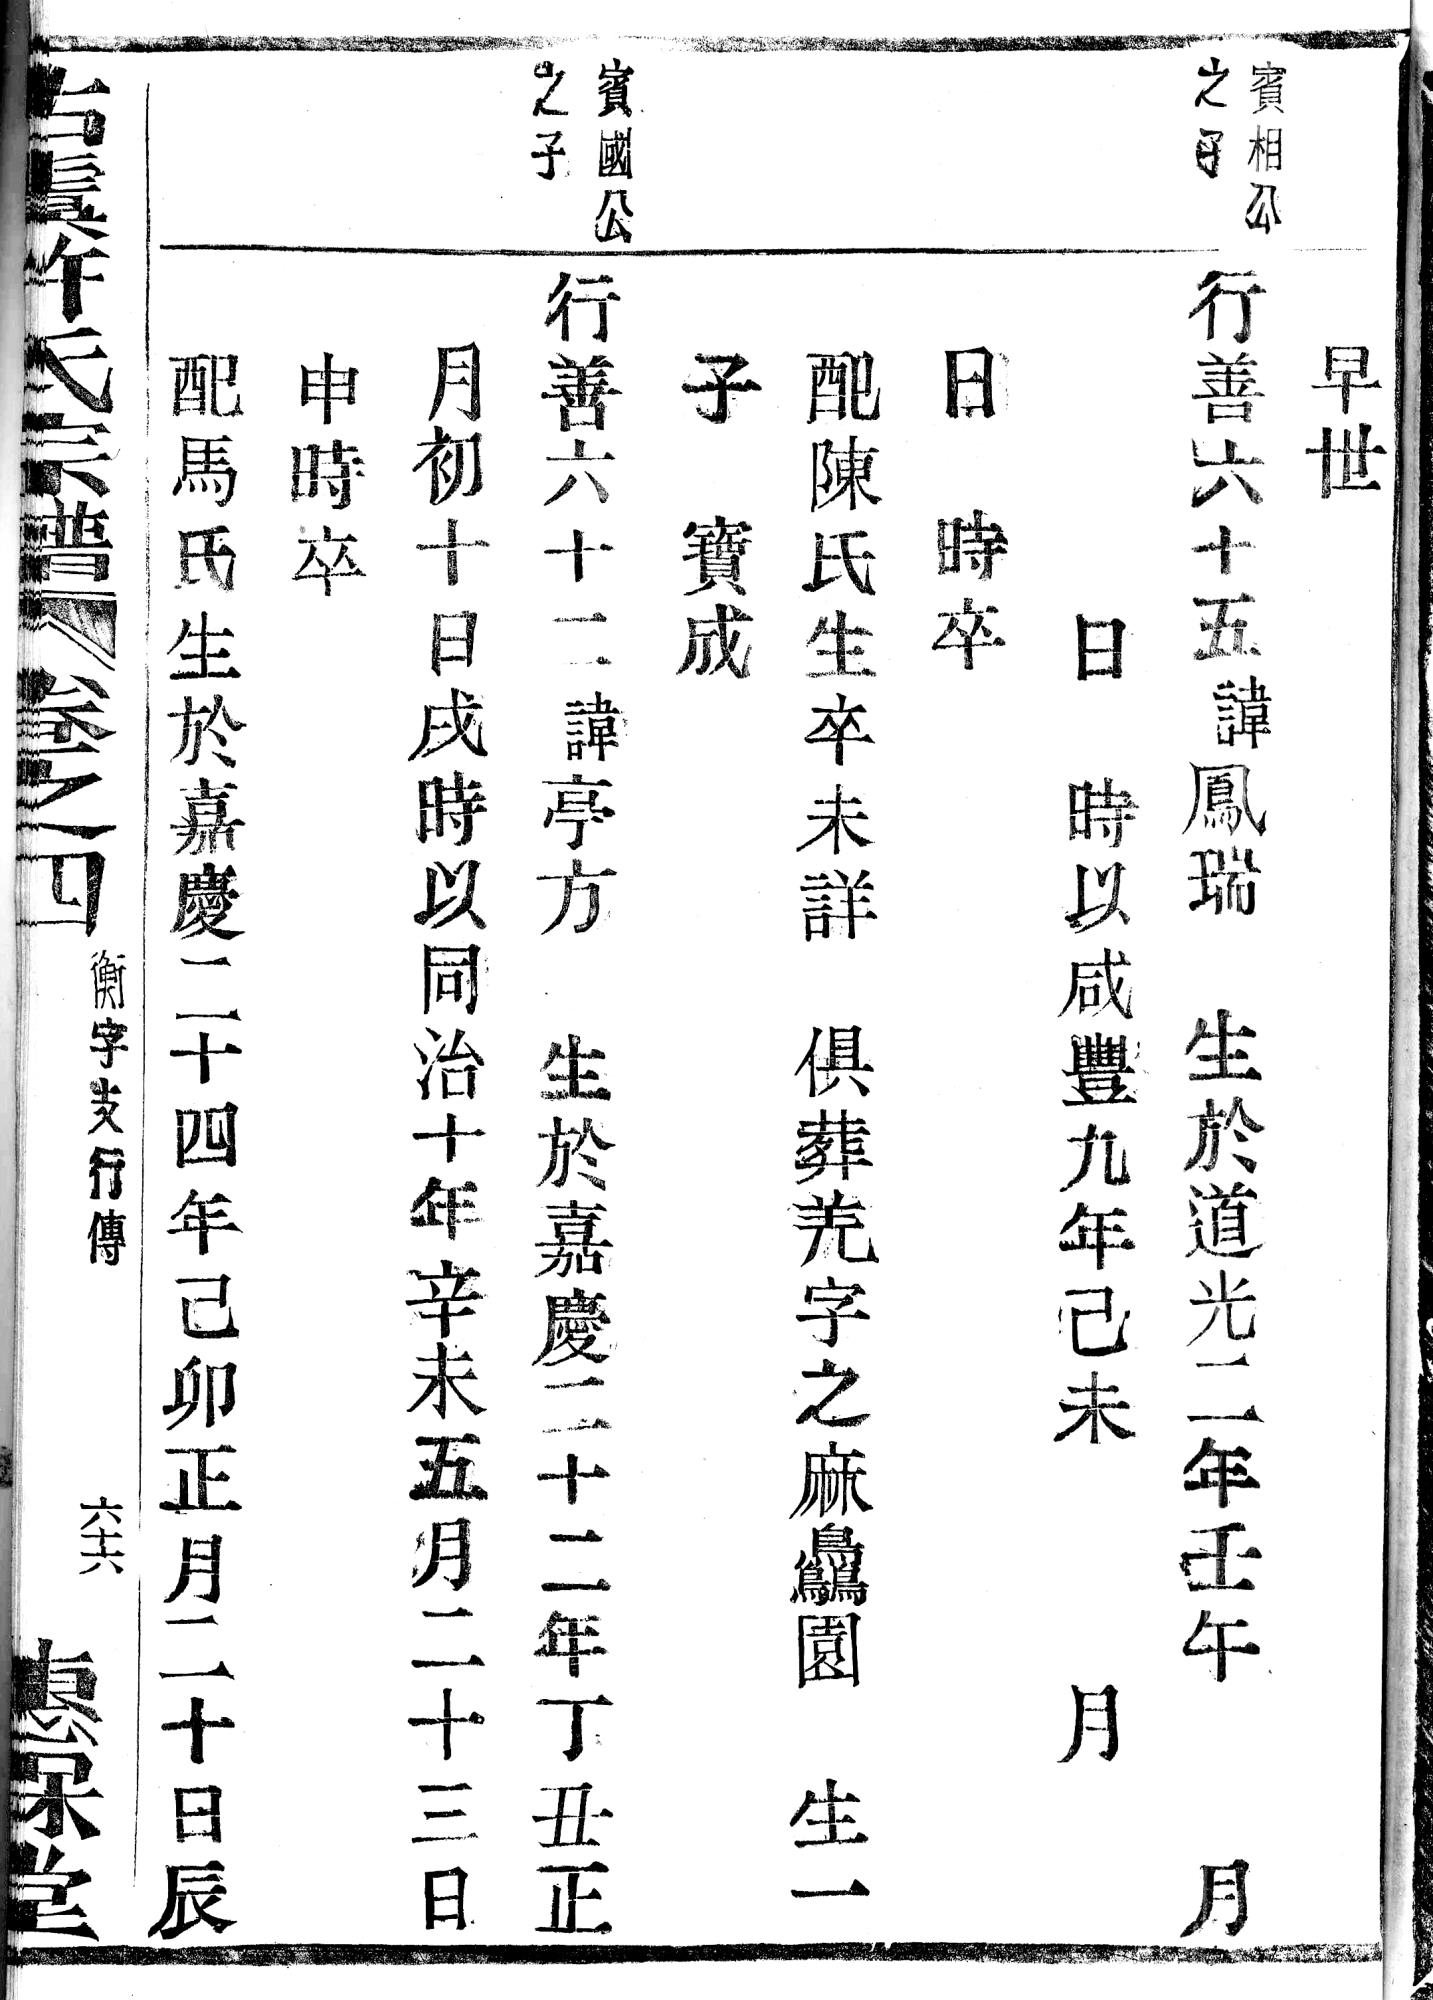 早世
賓相公
之子
行善六十五諱鳳瑞　生於道光二年壬午　月
日　時以咸豐九年己未　月
日　時卒
配陳氏生卒未詳　俱葬羌字之麻鱻園　生一
子　寶成
賓國公
之子
行善六十二諱亭方　生於嘉慶二十二年丁丑正
月初十日戌時以同治十年辛未五月二十三日
申時卒
配馬氏生於嘉慶二十四年己卯正月二十日辰
古虞許氏宗譜　卷之四
衡字支行傳
六十六
惠保堂